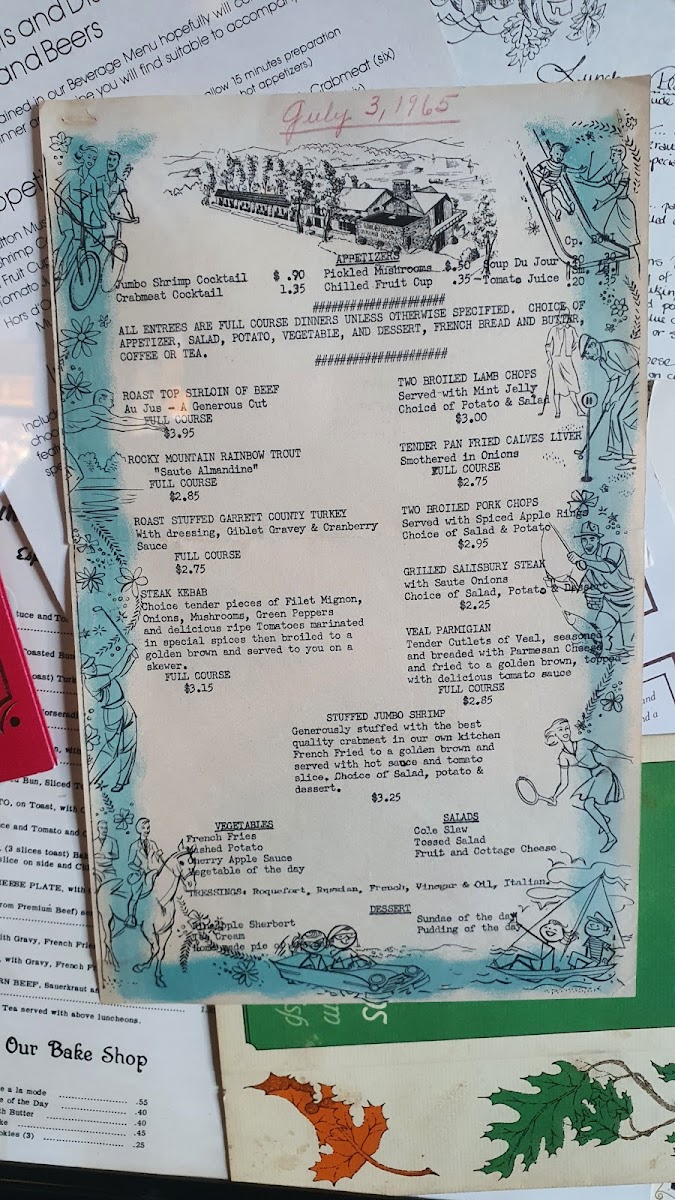 July 3, 1965
APPETIZERS
Cp. Bowl
Jumbo Shrimp Cocktail $ .90 Pickled Mushrooms $.50 Soup Du Jour .20 .30
Crabmeat Cocktail 1.35 Chilled Fruit Cup .35 Tomato Juice .20 .35
####################
ALL ENTREES ARE FULL COURSE DINNERS UNLESS OTHERWISE SPECIFIED. CHOICE OF
APPETIZER, SALAD, POTATO, VEGETABLE, AND DESSERT, FRENCH BREAD AND BUTTER,
COFFEE OR TEA.
####################
ROAST TOP SIRLOIN OF BEEF
Au Jus - A Generous Cut
FULL COURSE
$3.95
ROCKY MOUNTAIN RAINBOW TROUT
"Saute Almandine"
FULL COURSE
$2.85
ROAST STUFFED GARRETT COUNTY TURKEY
With dressing, Giblet Gravey & Cranberry
Sauce
FULL COURSE
$2.75
STEAK KEBAB
Choice tender pieces of Filet Mignon,
Onions, Mushrooms, Green Peppers
and delicious ripe Tomatoes marinated
in special spices then broiled to a
golden brown and served to you on a
skewer.
FULL COURSE
$3.15
TWO BROILED LAMB CHOPS
Served with Mint Jelly
Choice of Potato & Salad
$3.00
TENDER PAN FRIED CALVES LIVER
Smothered in Onions
FULL COURSE
$2.75
TWO BROILED PORK CHOPS
Served with Spiced Apple Rings
Choice of Salad & Potato
$2.95
GRILLED SALISBURY STEAK
with Saute Onions
Choice of Salad, Potato & Dessert
$2,25
VEAL PARMIGIAN
Tender Cutlets of Veal, seasoned
and breaded with Parmesan Cheese
and fried to a golden brown, topped
with delicious tomato sauce
FULL COURSE
$2.85
STUFFED JUMBO SHRIMP
Generously stuffed with the best
quality crabmeat in our own kitchen
French Fried to a golden brown and
served with hot sauce and tomato
slice. Choice of Salad, potato &
dessert.
$3.25
VEGETABLES
French Fries
Mashed Potato
Cherry Apple Sauce
Vegetable of the day
SALADS
Cole Slaw
Tossed Salad
Fruit and Cottage Cheese
DRESSINGS: Roquefort, Russian, French, Vinegar & Oil, Italian.
DESSERT
Pineapple Sherbert
Ice Cream
Homemade pie of the
Sundae of the day
Pudding of the day
and Beers
in our Beverage Menu hopefully will
you will find suitable to accompany
15 minutes preparation
hot appetizers.)
Crabmeat (six)
Lunch
(3 slices toast)
slice on side and
CHEESE PLATE, with
from Premium Beef)
with Gravy, French Fries
with Gravy, French
BEEF, Sauerkraut
Tea served with above luncheons.
Our Bake Shop
a la mode .55
of the Day .40
Butter .40
.45
(3) .25